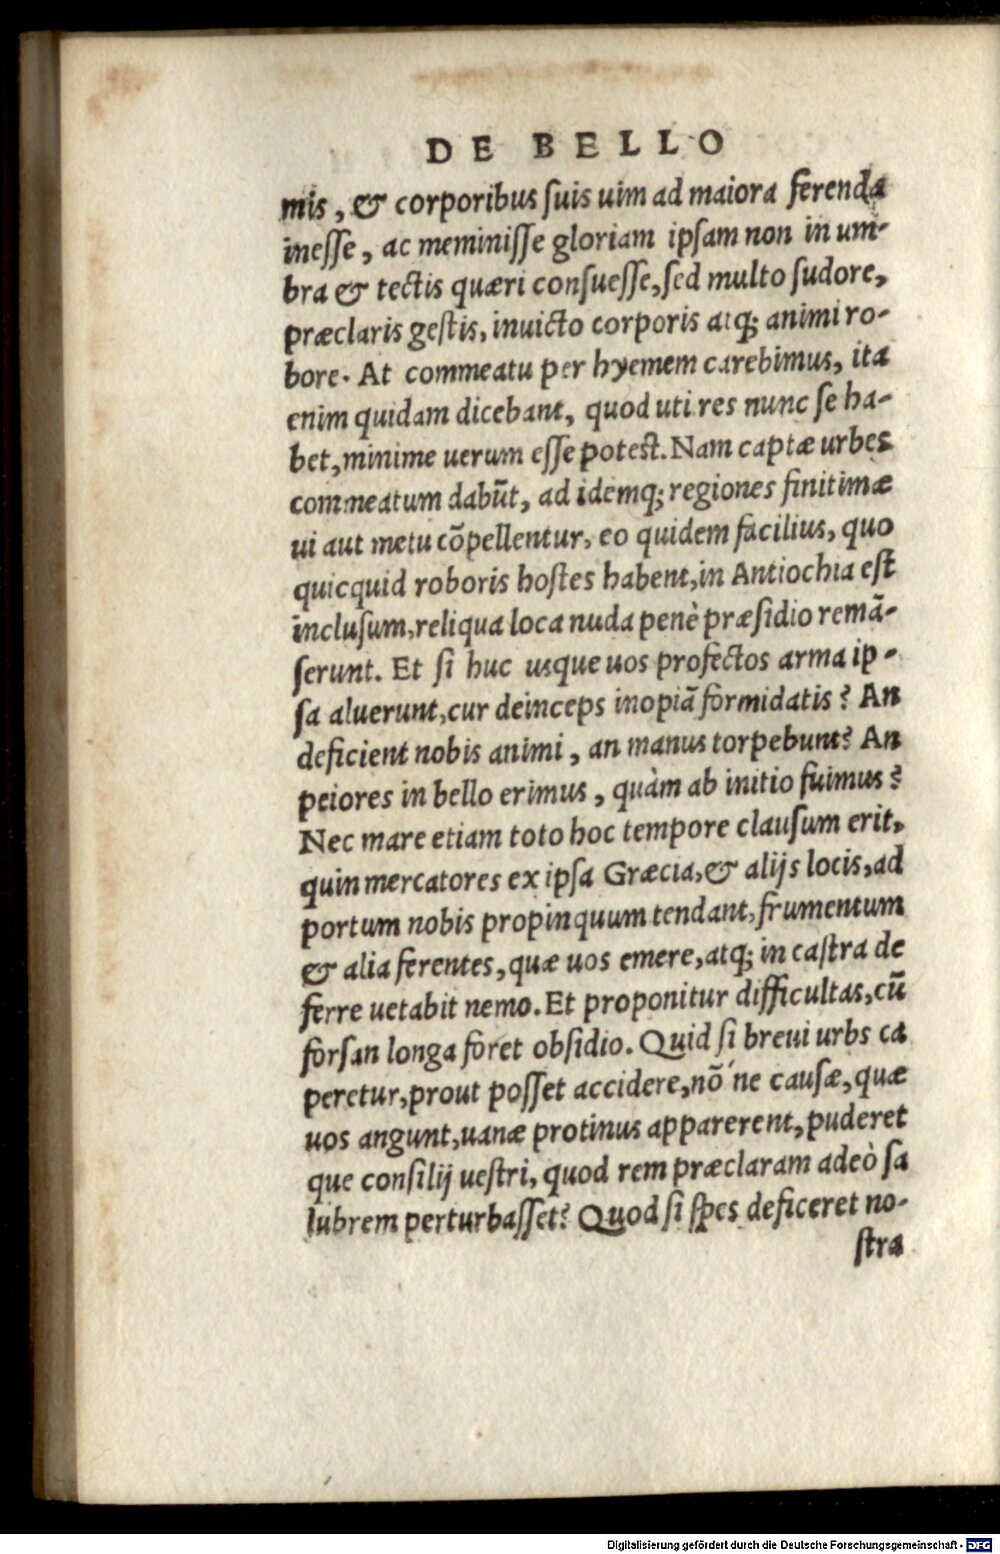 DE BELLO
mis, & corporibus ſuis uim ad maiora ferenda
ineſſe, ac meminiſſe gloriam ipſam non in um-
bra & tectis quæri conſueſſe, ſed multo ſudore,
præclaris geſtis, inuicto corporis atq; animi ro-
bore. At commeatu per hyemem carebimus, ita
enim quidam dicebant, quod uti res nunc ſe ha-
bet, minime uerum eſſe poteſt. Nam captæ urbes
commeatum dabūt, ad idemq; regiones finitimæ
ui aut metu cōpellentur, eo quidem facilius, quo
quicquid roboris hoſtes habent, in Antiochia eſt
incluſum, reliqua loca nuda penè præſidio remā-
ſerunt. Et ſi huc uſque uos profectos arma ip-
ſa aluerunt, cur deinceps inopiā formidatis? An
deficient nobis animi, an manus torpebunt? An
peiores in bello erimus, quàm ab initio fuimus?
Nec mare etiam toto hoc tempore clauſum erit,
quin mercatores ex ipſa Græcia, & alijs locis, ad
portum nobis propinquum tendant, frumentum
& alia ferentes, quæ uos emere, atq; in caſtra de
ferre uetabit nemo. Et proponitur difficultas, cū
forſan longa foret obſidio. Quid ſi breui urbs ca
peretur, prout poſſet accidere, nō ne cauſæ, quæ
uos angunt, uanæ protinus apparerent, puderet
que conſilij ueſtri, quod rem præclaram adeò ſa
lubrem perturbaſſet? Quod ſi ſpes deficeret no-
ſtra
Digitalisierung gefördert durch die Deutsche Forschungsgemeinschaft - DFG